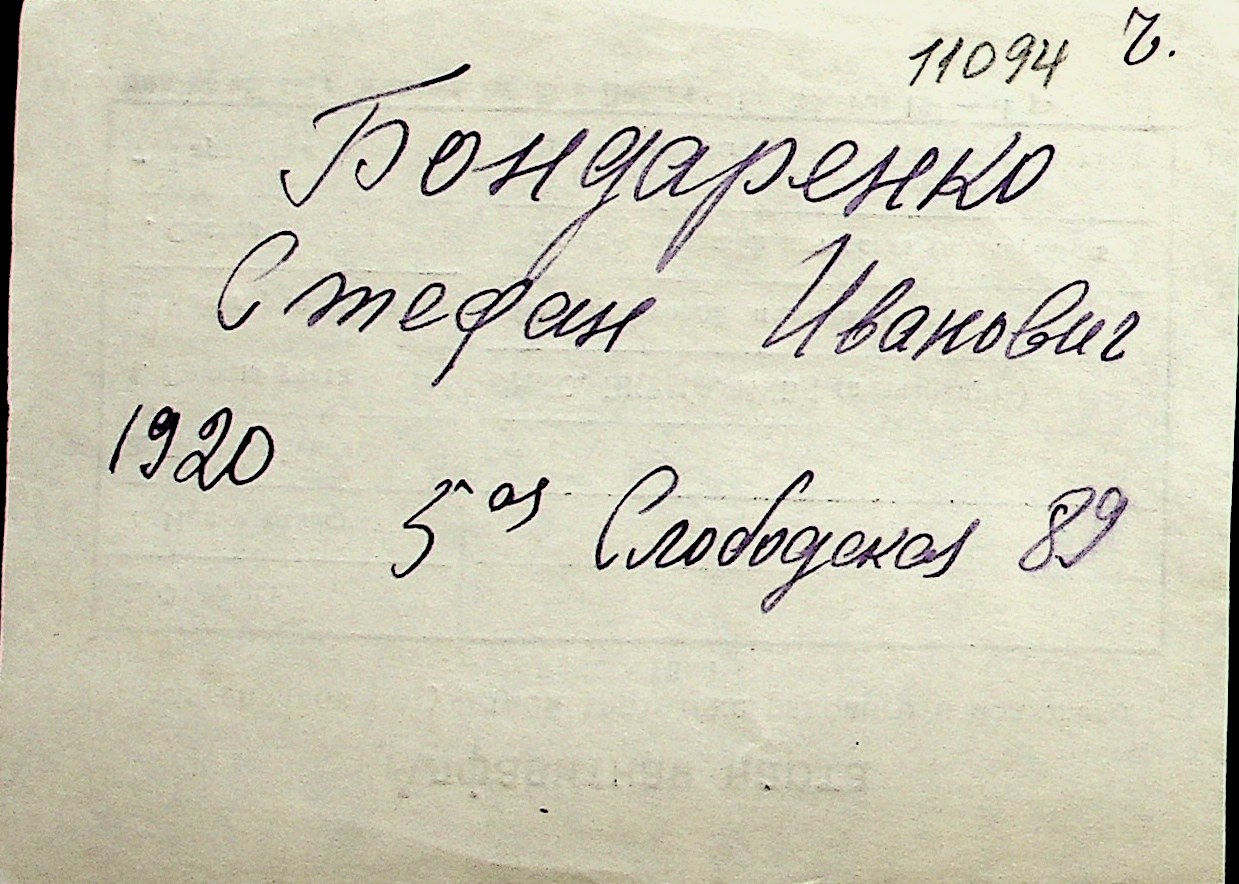 11094 Ч.
Бондаренко
Стефан Иванович
1920
5ая Слободская 89